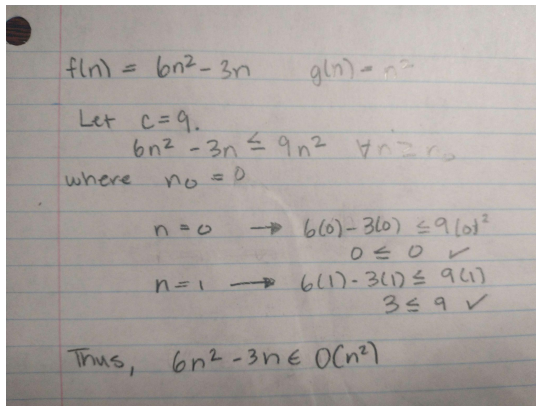 f(n) = 6n² - 3n g(n) = n²
Let c = 9.
6n² - 3n ≤ 9n² ∀n ≥ n₀
where n₀ = 0
n = 0 → 6(0) - 3(0) ≤ 9(0)²
0 ≤ 0 ✓
n = 1 → 6(1) - 3(1) ≤ 9(1)
3 ≤ 9 ✓
Thus, 6n² - 3n ∈ O(n²)